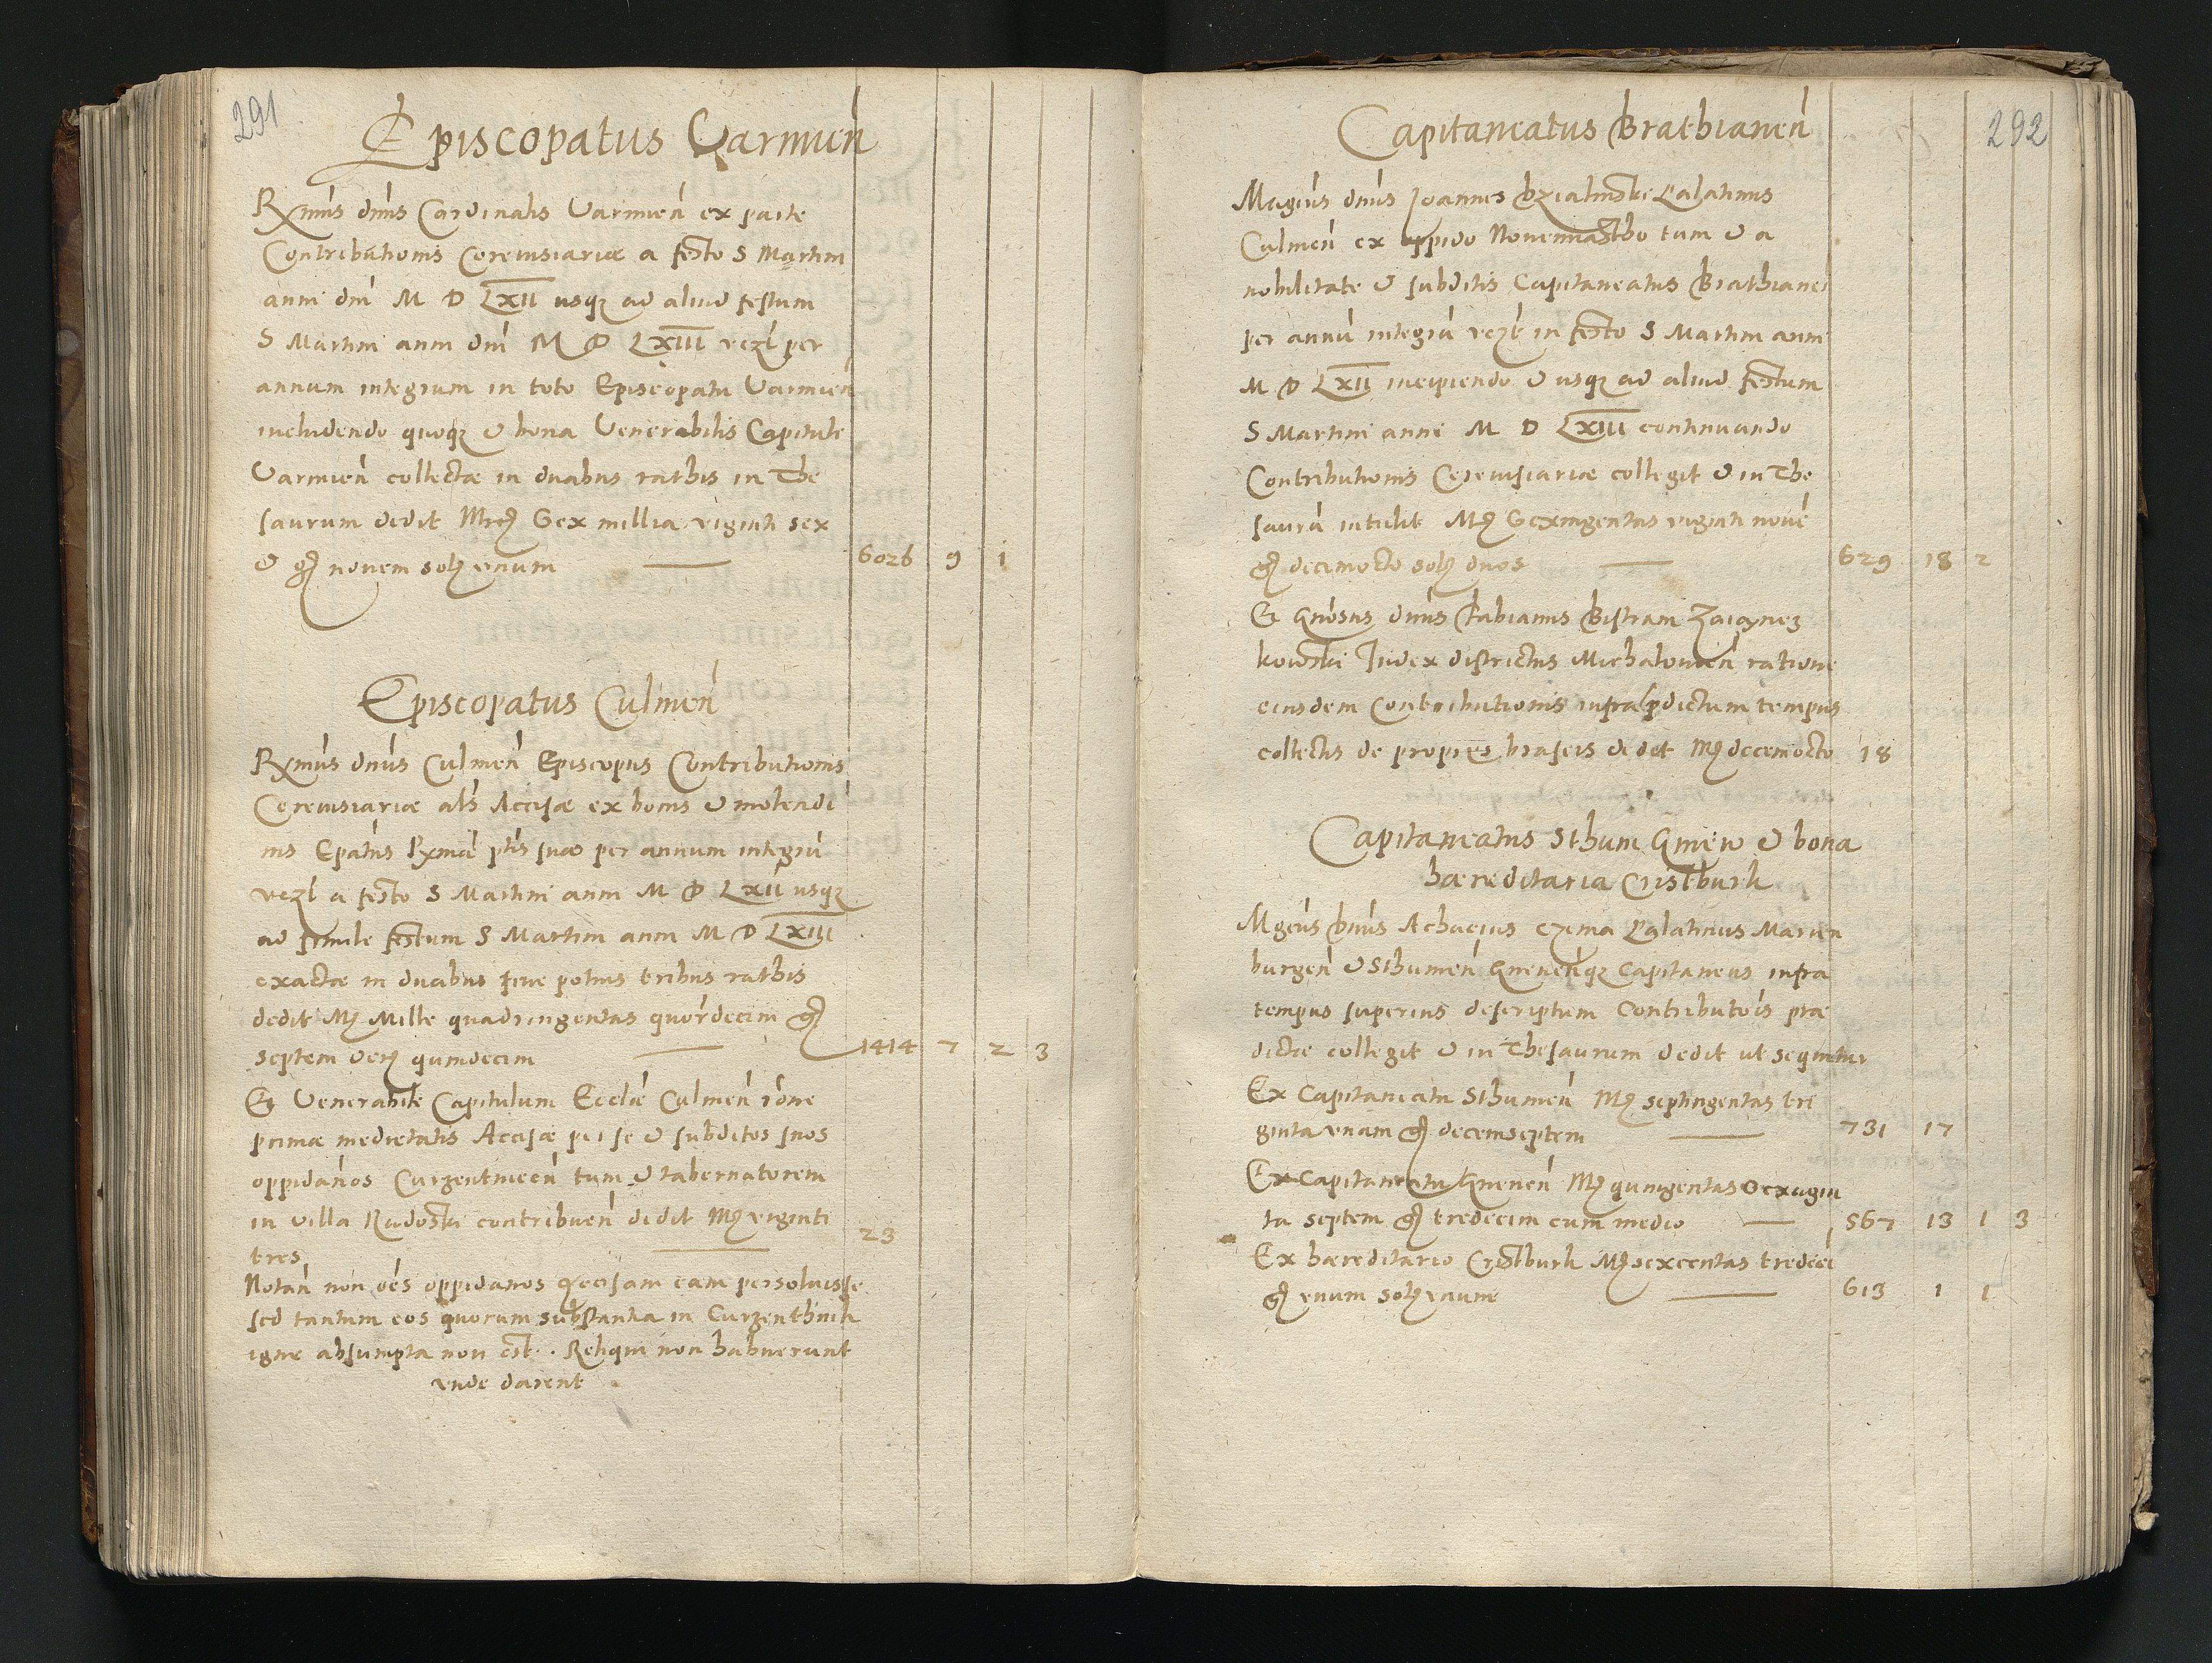 291
Episcopatus Varmien
Rxmus dnus Cardinalis Varmien ex parte
Contributionis Cerevisiariæ a festo S Martini
anni dni M D LXII usq ad aliud festum
S Martini anni dni M D LXIII vezl per
annum integrum in toto Episcopatu Varmien
includendo quoq & bona Venerabilis Capituli
Varmien collectæ in duabus rathis in The
saurum dedit Mrc Sex millia viginti sex
& gr novem sol unum 6026 9 1
Episcopatus Culmen
Rxmus dnus Culmen Episcopus Contributionis
Cerevisiariæ als Accisæ ex bonis & molendi
nis Epatus Rxmæ ptis suæ per annum integru
vezl a festo S Martini anni M D LXII usq
ad simile festum S Martini anni M D LXIII
exactæ in duabus sive potius tribus rathis
dedit Mr Mille quadringentas quordecim gr
septem den quindecim 1414 7 2 3
Et Venerabile Capitulum Ecclæ Culmen rone
primæ medietatis Accisæ per se & subditos suos
oppidanos Curzentnicen tum & tabernatorem
in villa Radoski contribuen dedit Mr viginti
tres 23
Notan non oes oppidanos Accisam eam persoluisse
sed tantum eos quorum substantia in Curzenthnik
igne absumpta non est. Reliqui non habuerunt
unde darent
292
Capitaneatus Brathianen
Magcus dnus Joannes Dzialinski Palatinus
Culmen ex oppido Novemiasthо tum & a
nobilitate & subditis Capitaneatus Brathianen
per annu integru vezl in festo S Martini anni
M D LXII incipiendo & usq ad aliud festum
S Martini anni M D LXIII continuando
Contributionis Cerevisiariæ collegit & in The
sauru intulit Mr Sexingentas viginti nove
gr decimocto sol duos 629 18 2
Et Gnosus dnus Fabianus Bistram Zaiaynez
kowski Iudex districtus Michalovien ratione
eiusdem Contributionis infra pdictum tempus
collectis de propriis braseis dedit Mr decemocto 18
Capitaneatus Sthum Gniew & bona
hæreditaria Cristburk
Mgcus Dnus Achacius Czema Palatinus Marien
burgen & Sthumen Gnevenq Capitaneus infra
tempus superius descriptum Contributois præ
dictæ collegit & in Thesaurum dedit ut sequitur
Ex Capitaneatu Sthumen Mr septingentas tri
ginta unam gr decemseptem 731 17
Ex Capitaneatu Gneven Mr quingentas sexagin
ta septem gr tredecim cum medio 567 13 1 3
Ex hæreditario Cristburk Mr sexcentas tredeci
gr unum sol unum 613 1 1